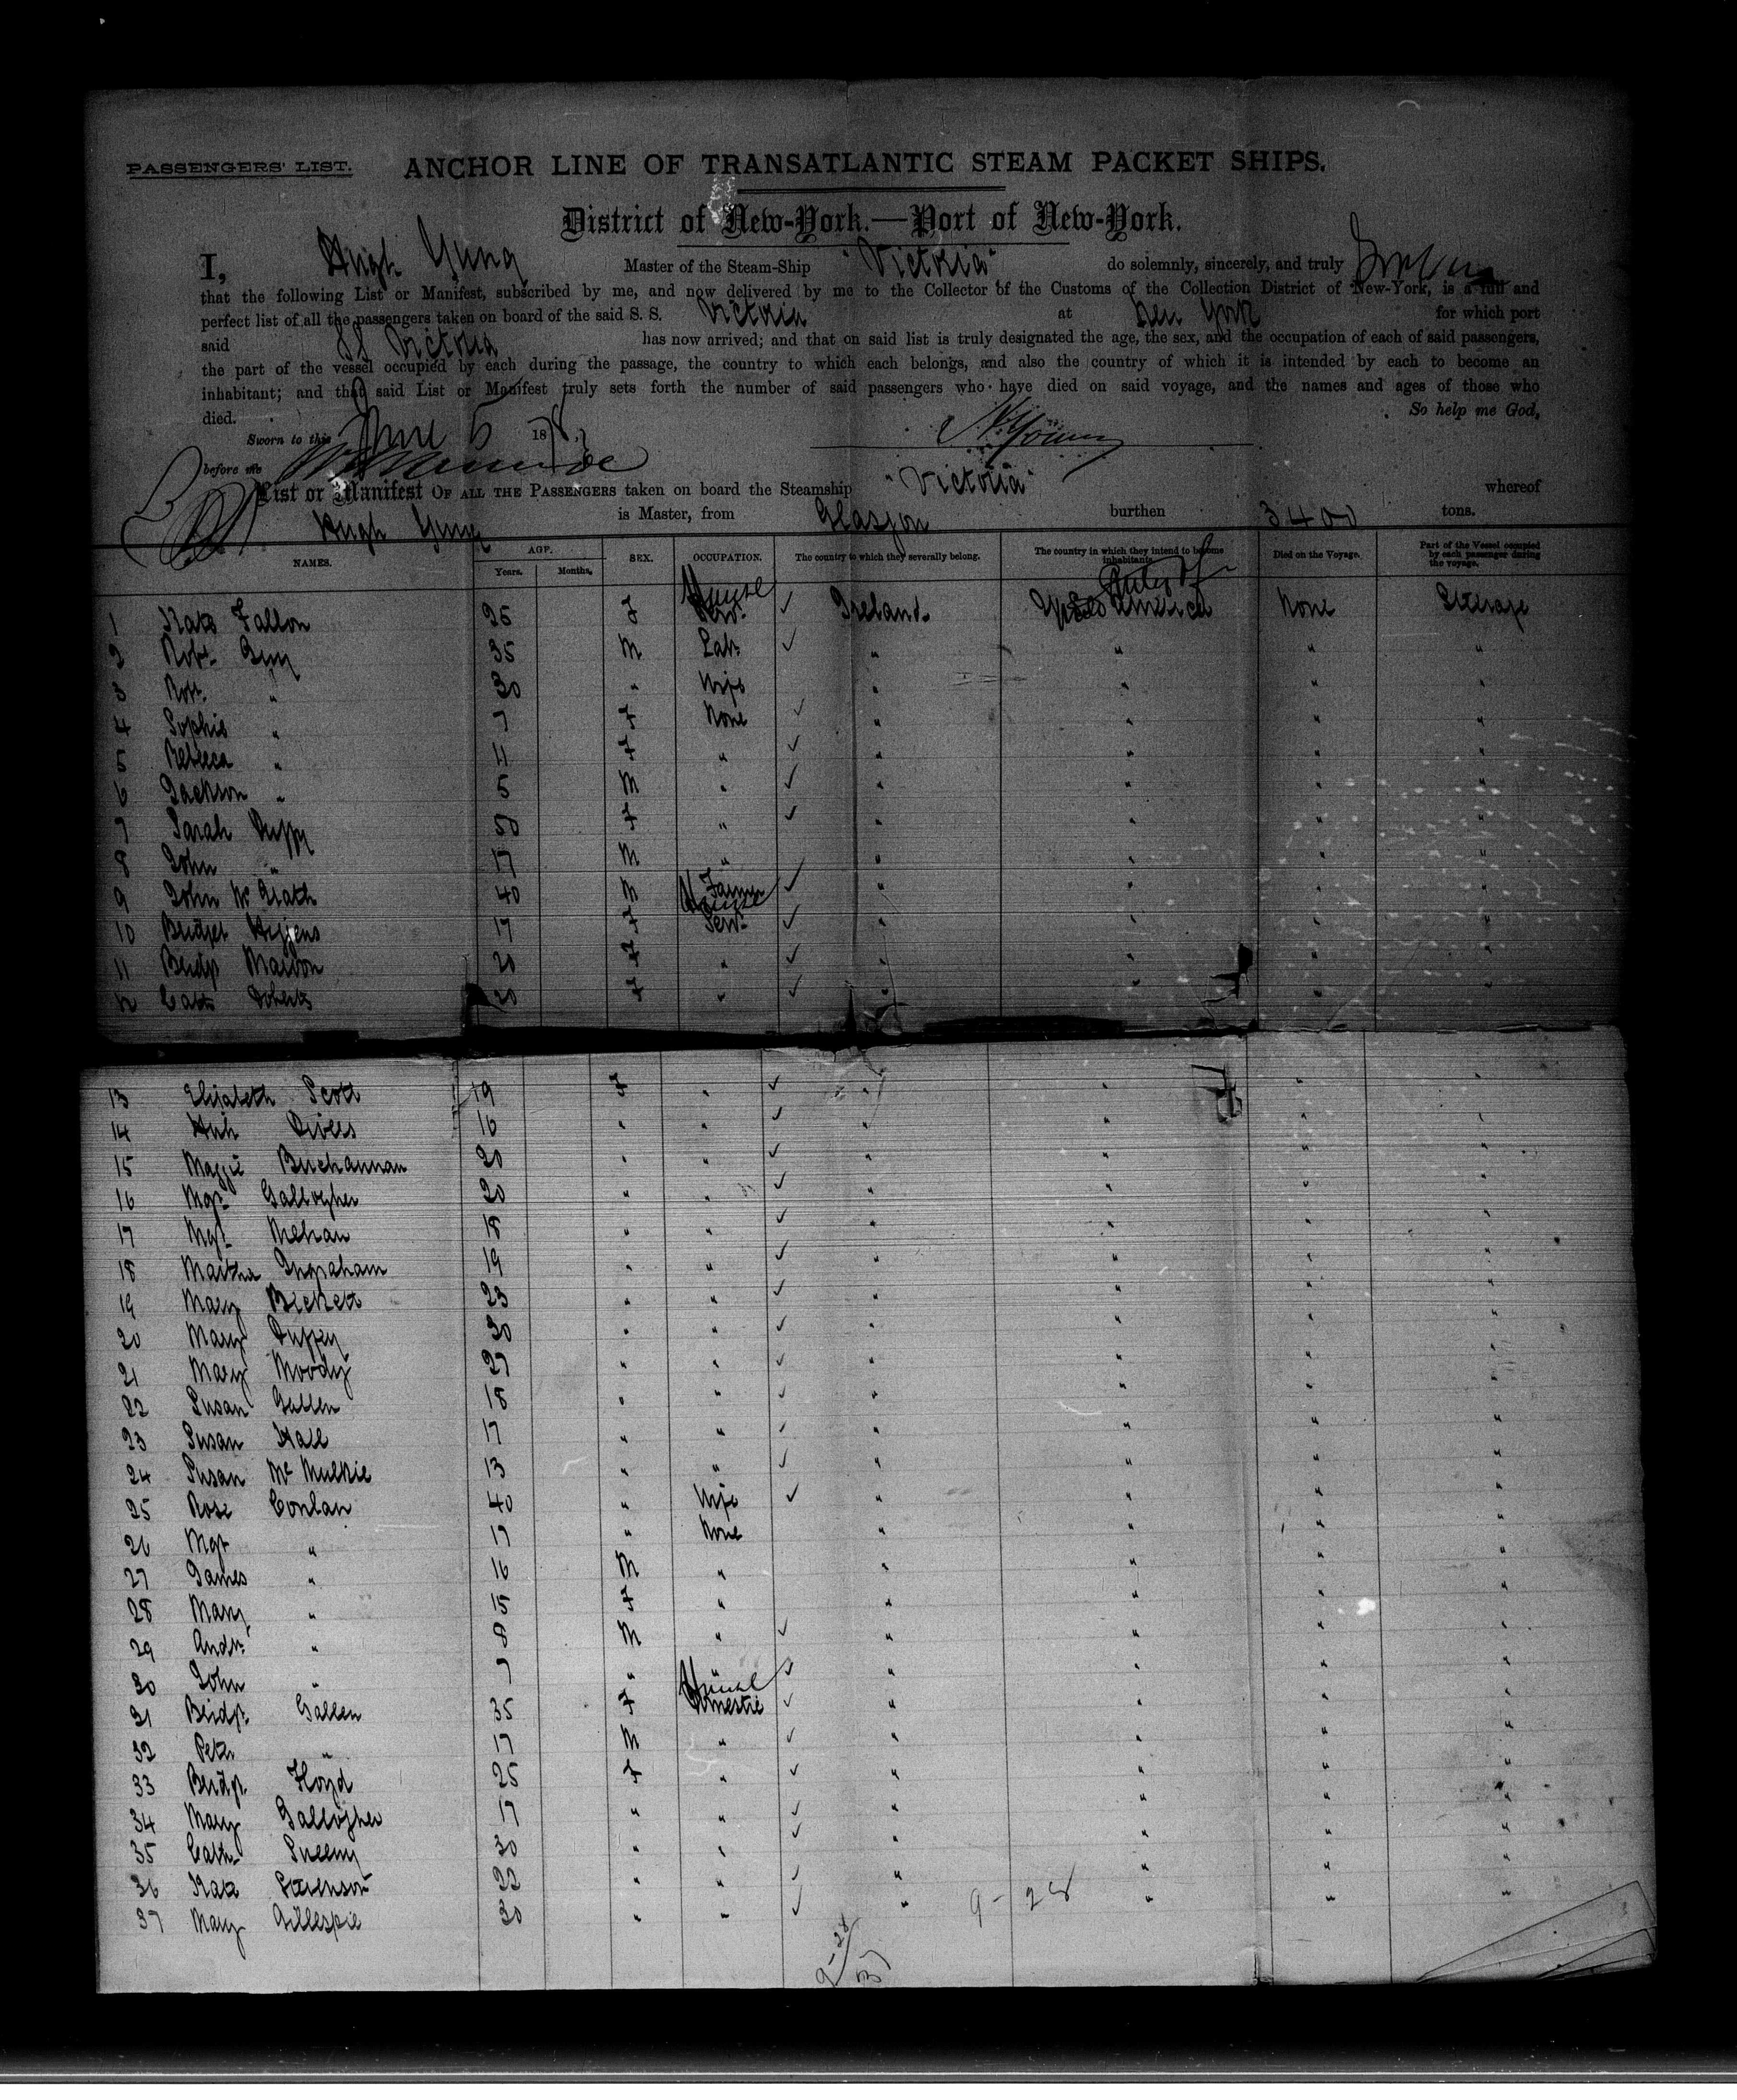 PASSENGERS' LIST. ANCHOR LINE OF TRANSATLANTIC STEAM PACKET SHIPS.
District of New-York.—Port of New-York.
I, Hugh Yung Master of the Steam-Ship "Victoria" do solemnly, sincerely, and truly
that the following List or Manifest, subscribed by me, and now delivered by me to the Collector of the Customs of the Collection District of New-York, is a full and
perfect list of all the passengers taken on board of the said S. S. Victoria at New York for which port
said SS Victoria has now arrived; and that on said list is truly designated the age, the sex, and the occupation of each of said passengers,
the part of the vessel occupied by each during the passage, the country to which each belongs, and also the country of which it is intended by each to become an
inhabitant; and that said List or Manifest truly sets forth the number of said passengers who have died on said voyage, and the names and ages of those who
died. So help me God,
Sworn to this June 6 1878 H. Young
before me
List or Manifest OF ALL THE PASSENGERS taken on board the Steamship "Victoria" whereof
Hugh Yung is Master, from Glasgow burthen 3400 tons.
NAMES. AGE. Years. Months. SEX. OCCUPATION. The country to which they severally belong. The country in which they intend to become inhabitants. Died on the Voyage. Part of the Vessel occupied by each passenger during the voyage.
1 Kate Fallon 25 F House Serv. ✓ Ireland. America None Steerage
2 Robt. Guy 35 M Lab. ✓ " " " "
3 Robt. " 30 " Wife " " " "
4 Sophie " 7 F None ✓ " " " "
5 Rebecca " 11 F " ✓ " " " "
6 Jackson " 5 M " ✓ " " " "
7 Sarah Duffy 50 F " ✓ " " " "
8 John " 17 M " " " " "
9 John McGrath 40 M Farmer ✓ " " " "
10 Bridget Higgens 17 F House Serv. ✓ " " " "
11 Bridgt 20 F " ✓ " " " "
12 Cath 20 F " ✓ " " " "
13 Elizabeth Scott 19 F " ✓ " " " "
14 16 " " ✓ " " " "
15 Maggie Buchannan 20 " " ✓ " " " "
16 Mgt. Gallogher 20 " " ✓ " " " "
17 Mgt. Mehan 18 " " ✓ " " " "
18 Martha Ingraham 19 " " ✓ " " " "
19 Mary Beckett 23 " " ✓ " " " "
20 Mary Duffey 30 " " ✓ " " " "
21 Mary Moody 27 " " ✓ " " " "
22 Susan Gallen 18 " " ✓ " " " "
23 Susan Hall 17 " " ✓ " " " "
24 Susan McMulkie 13 " " ✓ " " " "
25 Rose Conlan 40 " Wife ✓ " " " "
26 Mgt " 17 " None " " " "
27 James " 16 M " " " " "
28 Mary " 15 F " " " " "
29 Andr. " 8 M " ✓ " " " "
30 John " 7 " " ✓ " " " "
31 Bridgt. Gallen 35 F House Domestic ✓ " " " "
32 Peter " 17 M " ✓ " " " "
33 Bridgt. Floyd 25 F " ✓ " " " "
34 Mary Gallogher 17 " " ✓ " " " "
35 Cath. Sweeny 30 " " ✓ " " " "
36 Kate Stevenson 22 " " ✓ " " " "
37 Mary Gillespie 30 " " ✓ " " " "
9-28
9-28
37